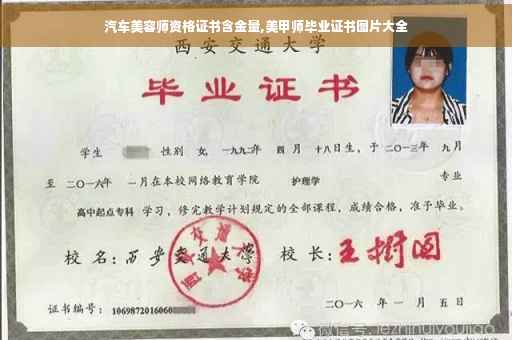 汽车美容师资格证书含金量,美甲师毕业证书图片大全
西安交通大学
毕业证书
学生 性别 女, 一九九二年 四 月 十八日生, 于 二〇一三年 九月
至 二〇一六年 一月在本校网络教育学院 护理学 专业
高中起点专科 学习, 修完教学计划规定的全部课程, 成绩合格, 准予毕业。
校 名: 西安交通大学 校 长: 王树国
证书编号: 1069872016060
二〇一六 年 一 月 五 日
微信号: jezhinuiyoujiao